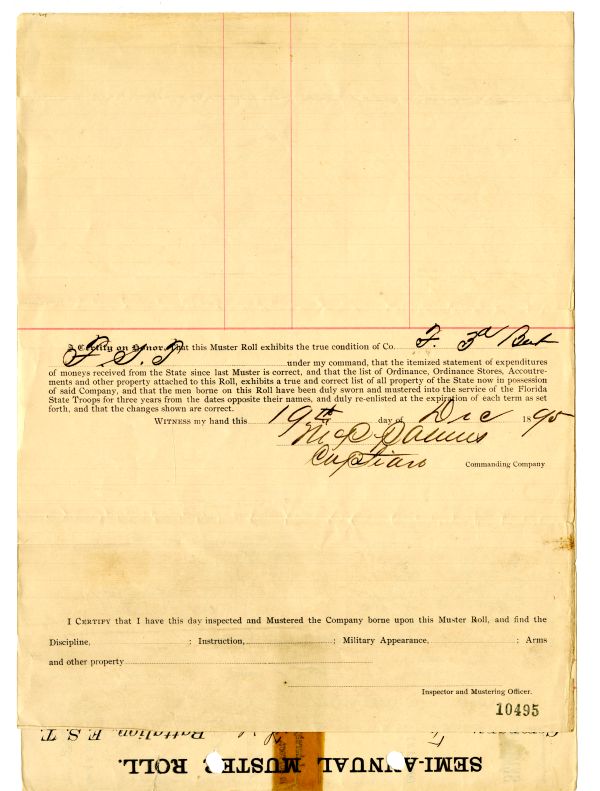 I Certify on Honor, that this Muster Roll exhibits the true condition of Co. F. 3d Bat
F. S. T under my command, that the itemized statement of expenditures
of moneys received from the State since last Muster is correct, and that the list of Ordinance, Ordinance Stores, Accoutre-
ments and other property attached to this Roll, exhibits a true and correct list of all property of the State now in possession
of said Company, and that the men borne on this Roll have been duly sworn and mustered into the service of the Florida
State Troops for three years from the dates opposite their names, and duly re-enlisted at the expiration of each term as set
forth, and that the changes shown are correct.
WITNESS my hand this 19th day of Dec 1895
Captain Commanding Company
I CERTIFY that I have this day inspected and Mustered the Company borne upon this Muster Roll, and find the
Discipline, ; Instruction, ; Military Appearance, ; Arms
and other property
Inspector and Mustering Officer.
10495
Battalion, F. S. T.
SEMI-ANNUAL MUSTER ROLL.